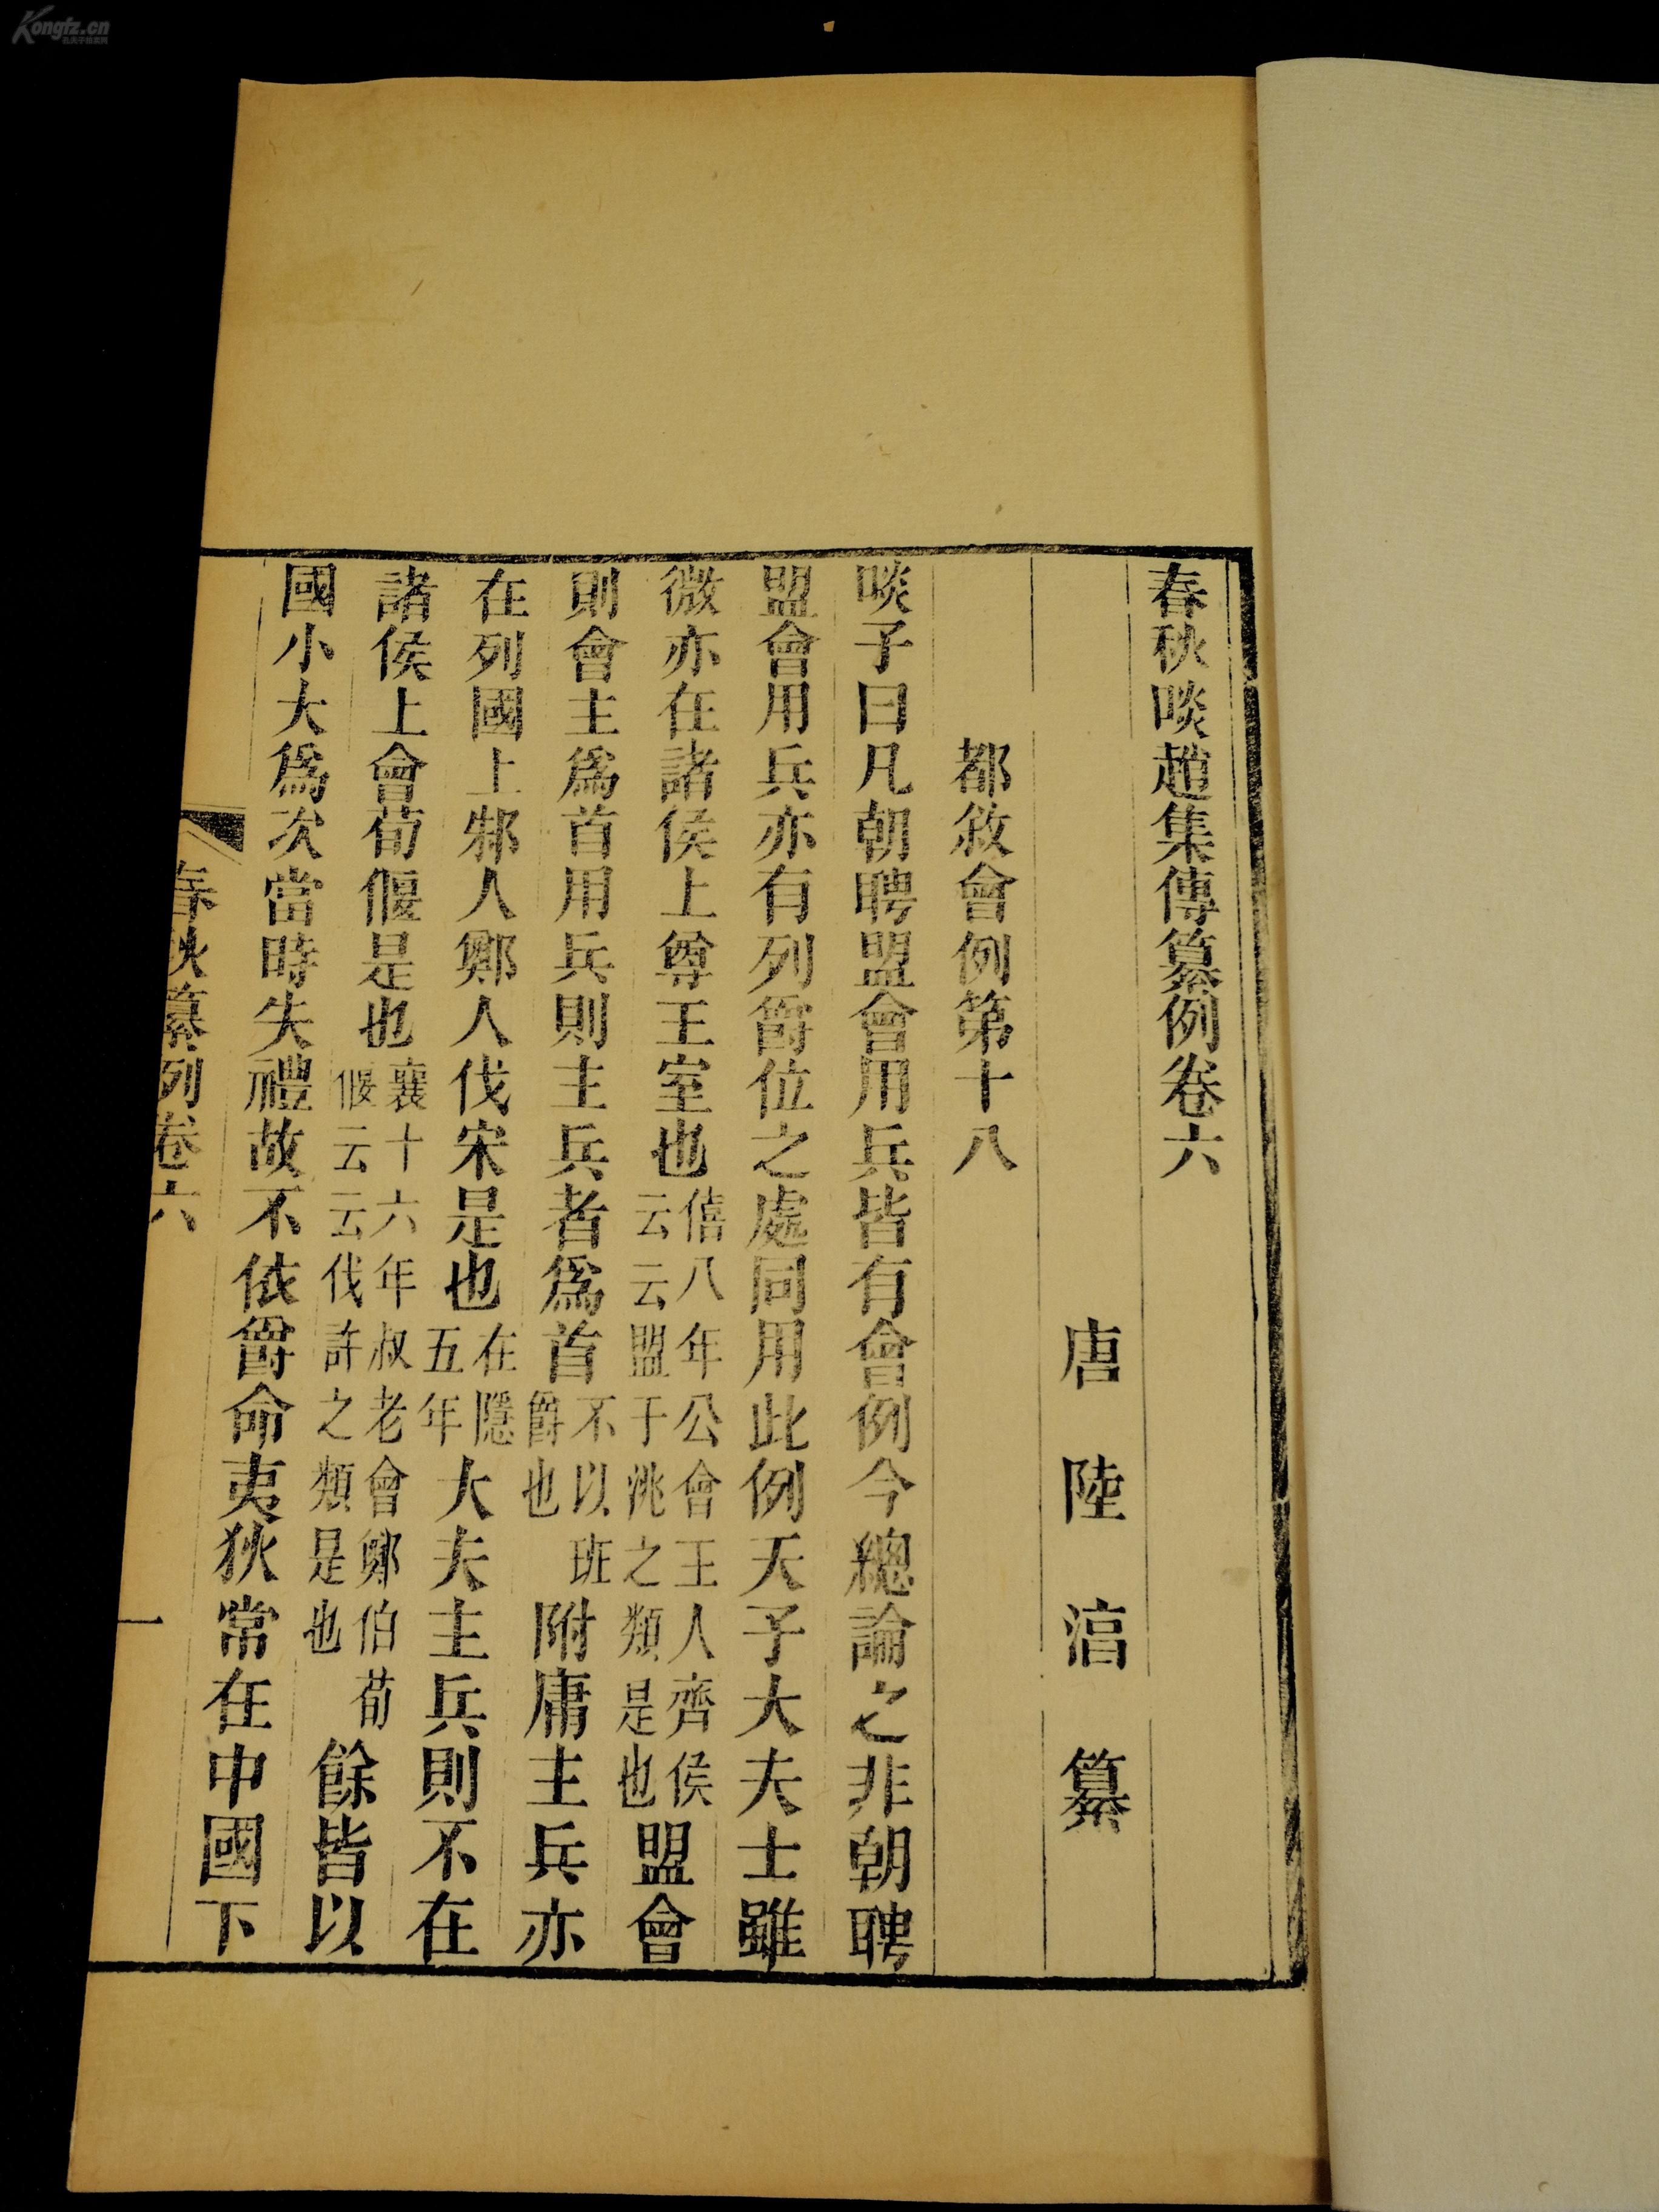 春秋啖趙集傳纂例卷六
唐陸淳纂
都敘會例第十八
啖子曰凡朝聘盟會用兵皆有會例今總論之非朝聘
盟會用兵亦有列爵位之處同用此例天子大夫士雖
微亦在諸侯上尊王室也僖八年公會王人齊侯云云盟于洮之類是也盟會
則會主為首用兵則主兵者為首不以班爵也附庸主兵亦
在列國上邾人鄭人伐宋是也在隱五年大夫主兵則不在
諸侯上會荀偃是也襄十六年叔老會鄭伯荀偃云云伐許之類是也餘皆以
國小大為次當時失禮故不依爵命夷狄常在中國下
春秋纂例卷六
一
Kongfz.cn